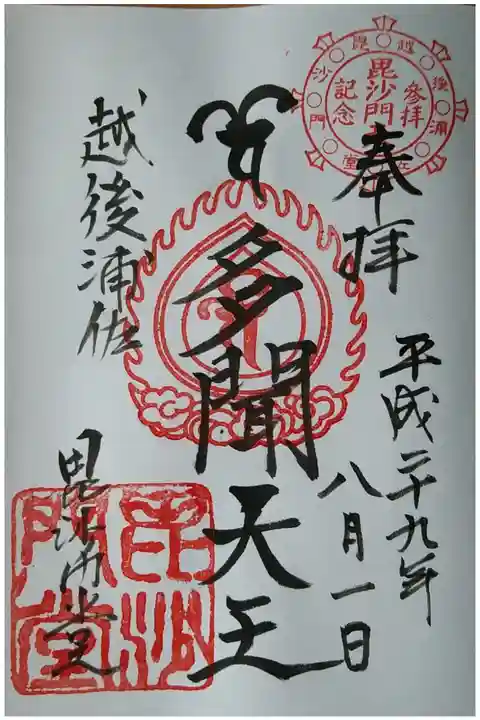 奉拝
平成二十九年
八月一日
多聞天王
越後浦佐
毘沙門堂
越後浦佐毘沙門堂
参拝
毘沙門
記念
毘沙門堂